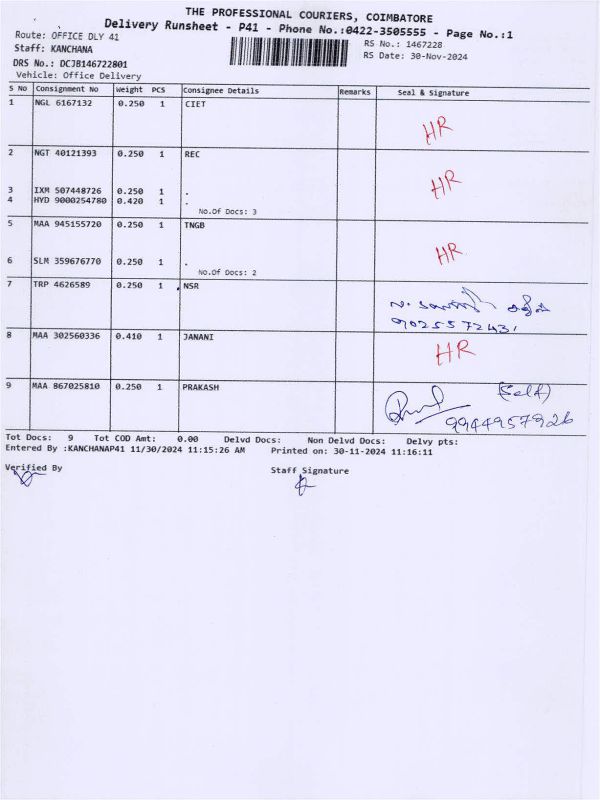 THE PROFESSIONAL COURIERS, COIMBATORE
Delivery Runsheet - P41 - Phone No.:0422-3505555 - Page No.:1
Route: OFFICE DLY 41
RS No.: 1467228
Staff: KANCHANA
RS Date: 30-Nov-2024
DRS No.: DCJB146722801
Vehicle: Office Delivery
S No Consignment No Weight PCS Consignee Details Remarks Seal & Signature
1 NGL 6167132 0.250 1 CIET
HR
2 NGT 40121393 0.250 1 REC
HR
3 IXM 507448726 0.250 1 .
4 HYD 9000254780 0.420 1 .
No.Of Docs: 3
5 MAA 945155720 0.250 1 TNGB
HR
6 SLM 359676770 0.250 1 .
No.Of Docs: 2
7 TRP 4626589 0.250 1 NSR
9025572431
8 MAA 302560336 0.410 1 JANANI
HR
9 MAA 867025810 0.250 1 PRAKASH
(Self)
9944957926
Tot Docs: 9 Tot COD Amt: 0.00 Delvd Docs: Non Delvd Docs: Delvy pts:
Entered By :KANCHANAP41 11/30/2024 11:15:26 AM Printed on: 30-11-2024 11:16:11
Verified By Staff Signature